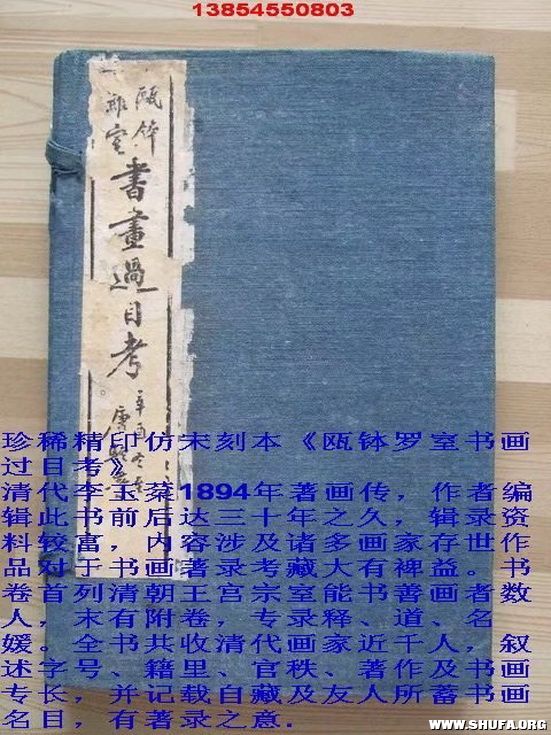 13854550803
書畫過目考
珍稀精印仿宋刻本《瓯钵罗室书画
过目考》
清代李玉棻1894年著画传，作者编
辑此书前后达三十年之久，辑录资
料较富，内容涉及诸多画家存世作
品对于书画著录考藏大有裨益。书
卷首列清朝王宫宗室能书善画者数
人，末有附卷，专录释、道、名
媛。全书共收清代画家近千人，叙
述字号、籍里、官秩、著作及书画
专长，并记载自藏及友人所蓄书画
名目，有著录之意.
WWW.SHUFA.ORG